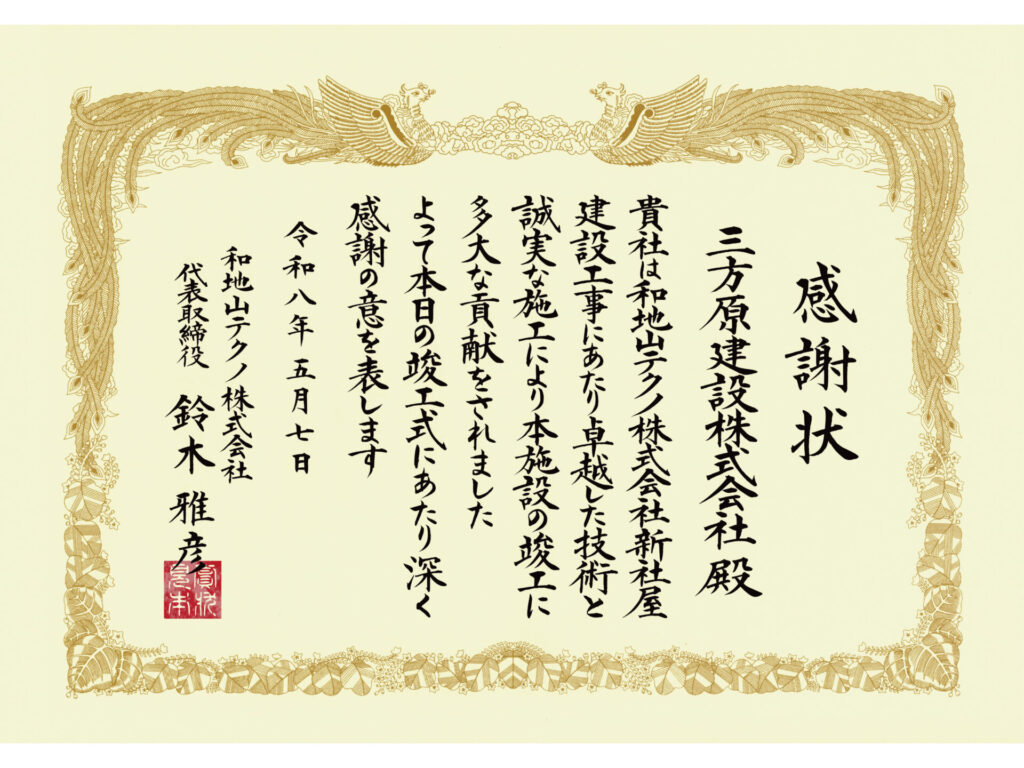 感謝状
三方原建設株式会社殿
貴社は和地山テクノ株式会社新社屋
建設工事にあたり卓越した技術と
誠実な施工により本施設の竣工に
多大な貢献をされました
よって本日の竣工式にあたり深く
感謝の意を表します
令和八年五月七日
和地山テクノ株式会社
代表取締役 鈴木雅彦
賞状見本